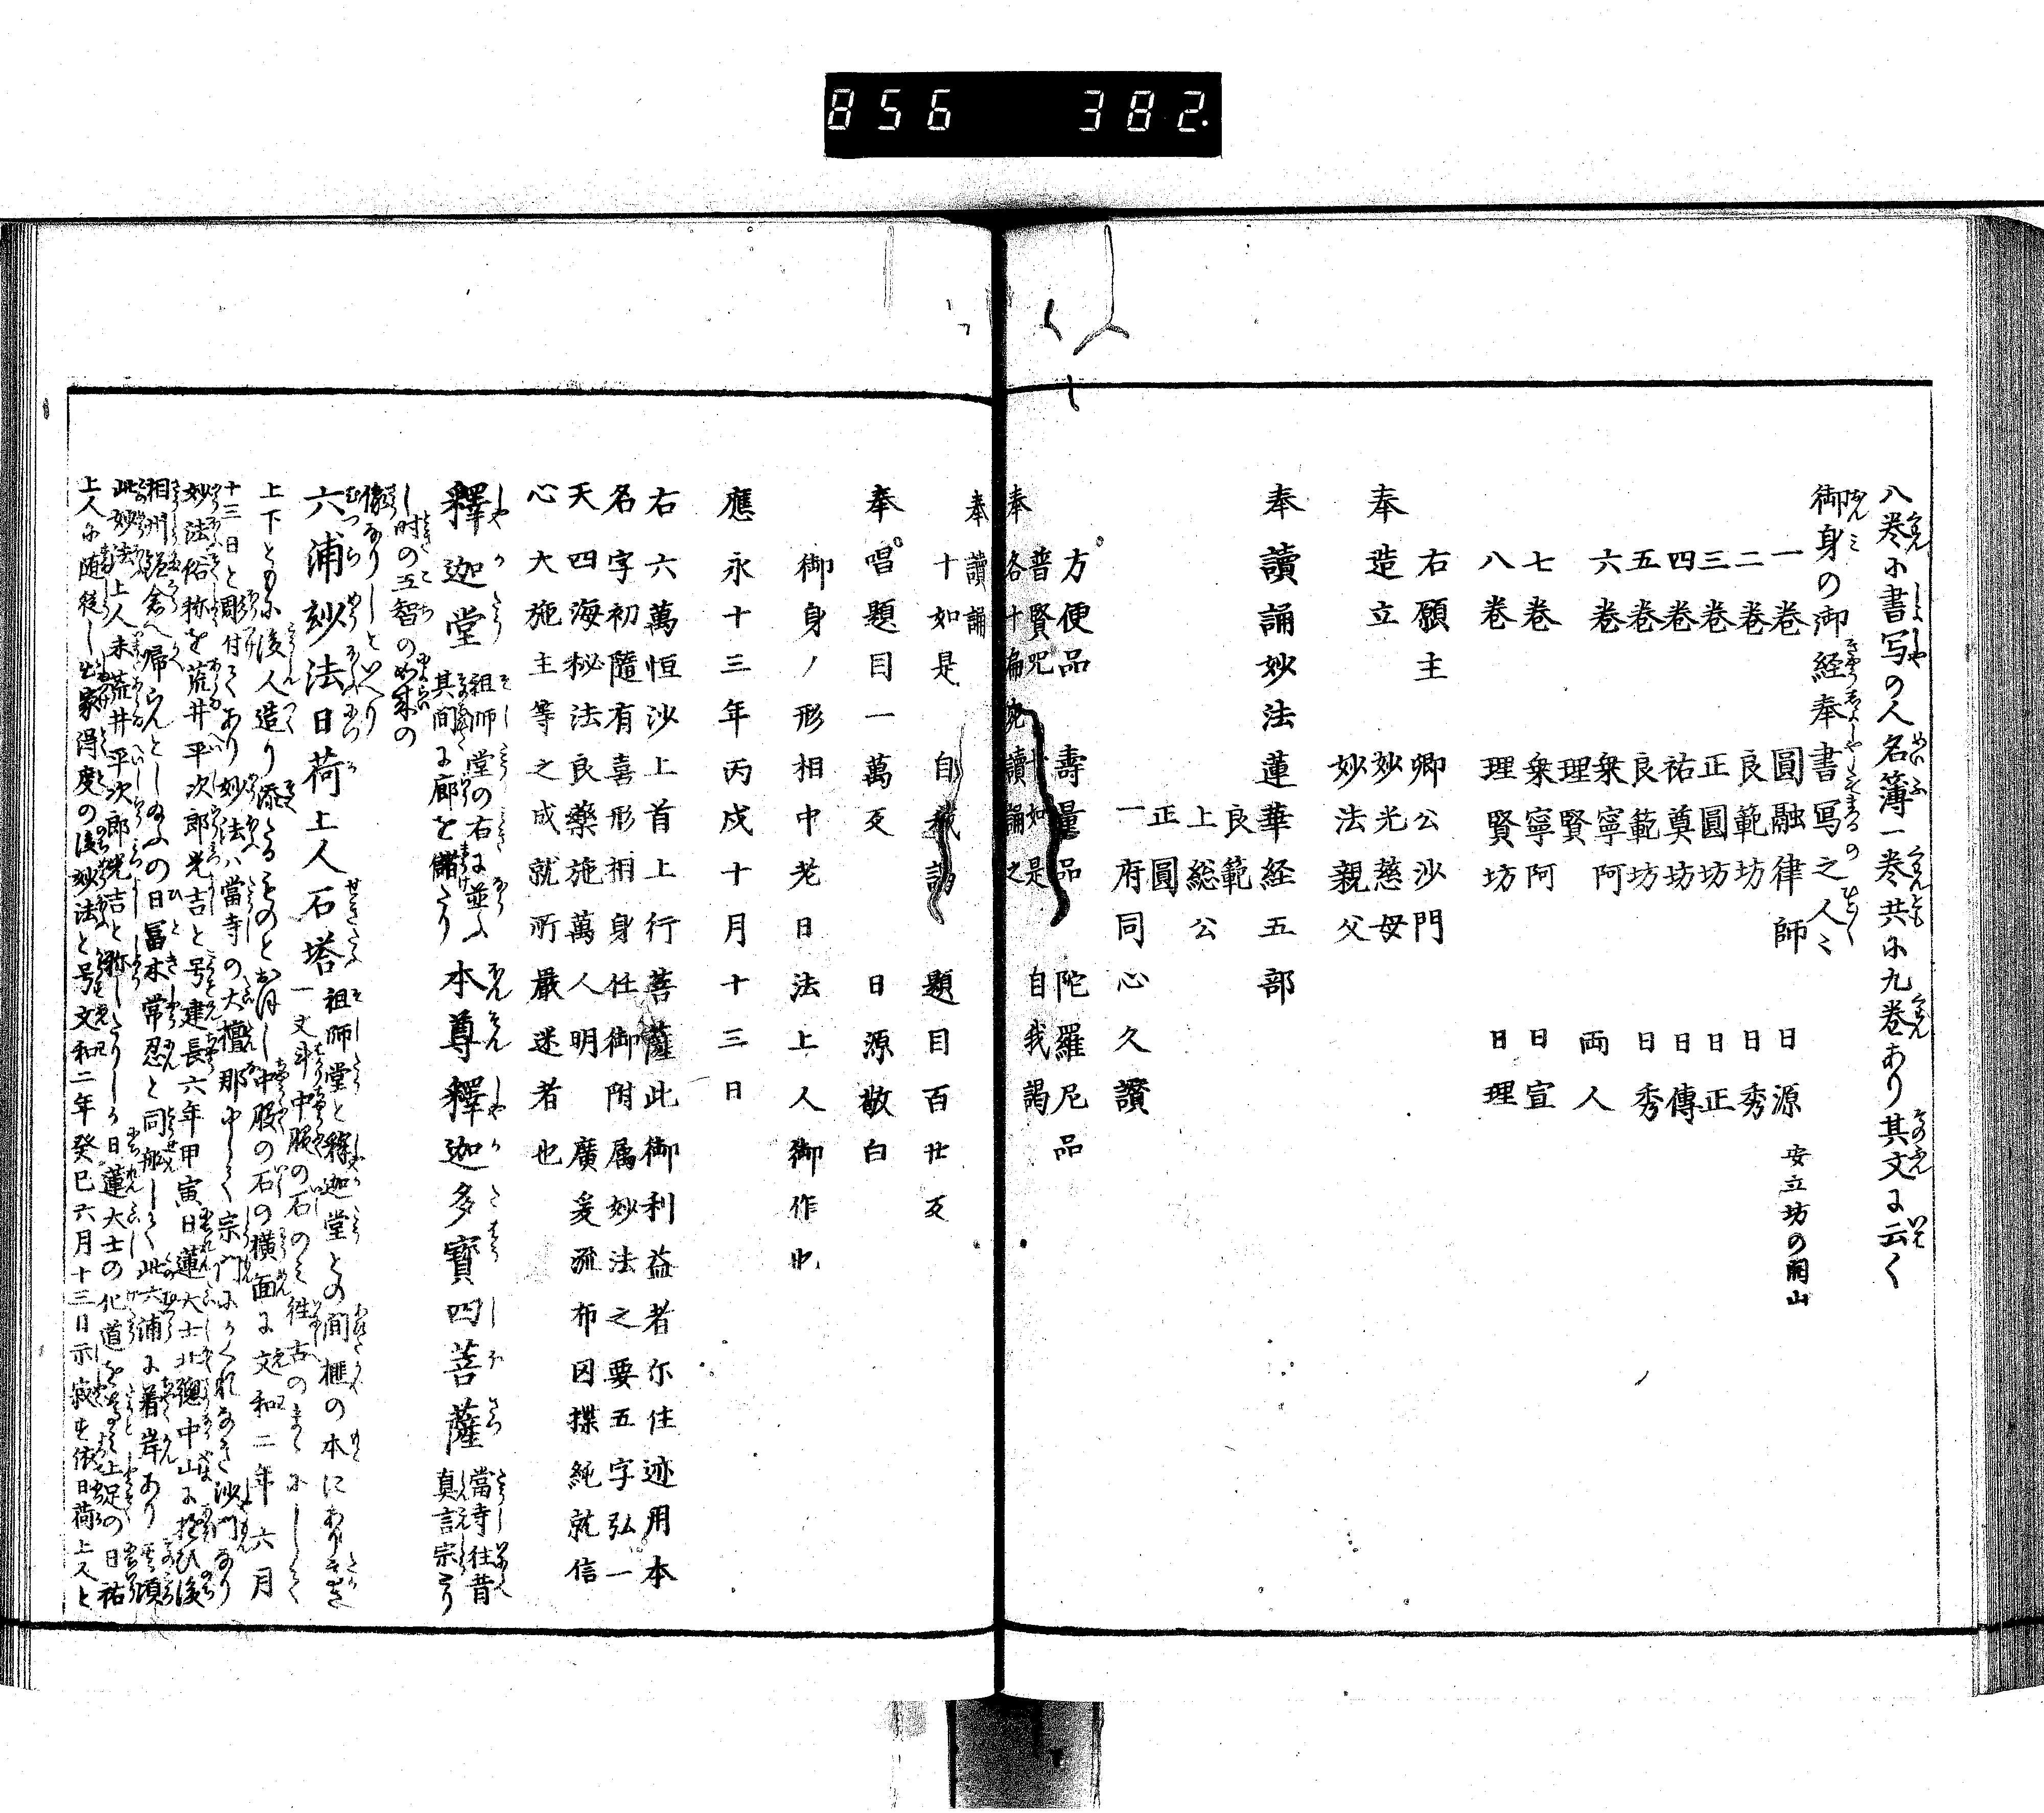 856 382.
八巻に書写の人名簿一巻共に九巻あり其文に云く
御身の御経奉書写之人々
一巻 圓融律師 日源 安立坊の開山
二巻 良範坊 日秀
三巻 正圓坊 日正
四巻 祐奠坊 日傳
五巻 良範坊 日秀
六巻 衆寧阿
理賢 両人
七巻 衆寧阿 日宣
八巻 理賢坊 日理
右願主 卿公沙門
奉造立 妙光慈母
妙法親父
奉讀誦妙法蓮華経五部
良範
上総公
正圓
一府同心久讃
方便品 壽量品 陀羅尼品
普賢咒 十如是 自我謁
奉 各十遍宛讀誦之
奉讀誦
十如是 自我謁 題目百廿反
奉唱題目一萬反 日源敬白
御身ノ形相中老日法上人御作也
應永十三年丙戌十月十三日
右六萬恒沙上首上行菩薩此御利益者尓住迹用本
名字初隨有喜形相身任御附属妙法之要五字弘一
天四海秘法良藥施萬人明 廣爰流布因揲純就信
心大施主等之成就所嚴迷者也
釋迦堂 祖師堂の右に並ふ
其間に廊を儲たり 本尊釋迦多寳四菩薩 當寺往昔
真言宗たり
し時の五智の如来の
像なりしといへり
六浦妙法日荷上人石塔 祖師堂と釋迦堂との間榧の本にあり高さ
一丈斗中服の石のミ往古のまゝにしして
上下ともに後人造り添たるものとお月し中服の石の横面に文和二年六月
十三日と彫付てあり妙法ハ當寺の大檀那中しく宗門にかくれなき沙門なり
妙法俗称を荒井平次郎光吉と号建長六年甲寅日蓮大士北總中山に遊ひ後
相州鎌倉へ帰らんとし給ふの日冨木常忍と同舩しく此六浦に着岸あり其頃
此妙法上人未荒井平次郎光吉と称したりしか日蓮大士の化道を尊ミ上足の日祐
上人に随従し出家得度の後妙法と号文和二年癸巳六月十三日示寂す依日荷上人と